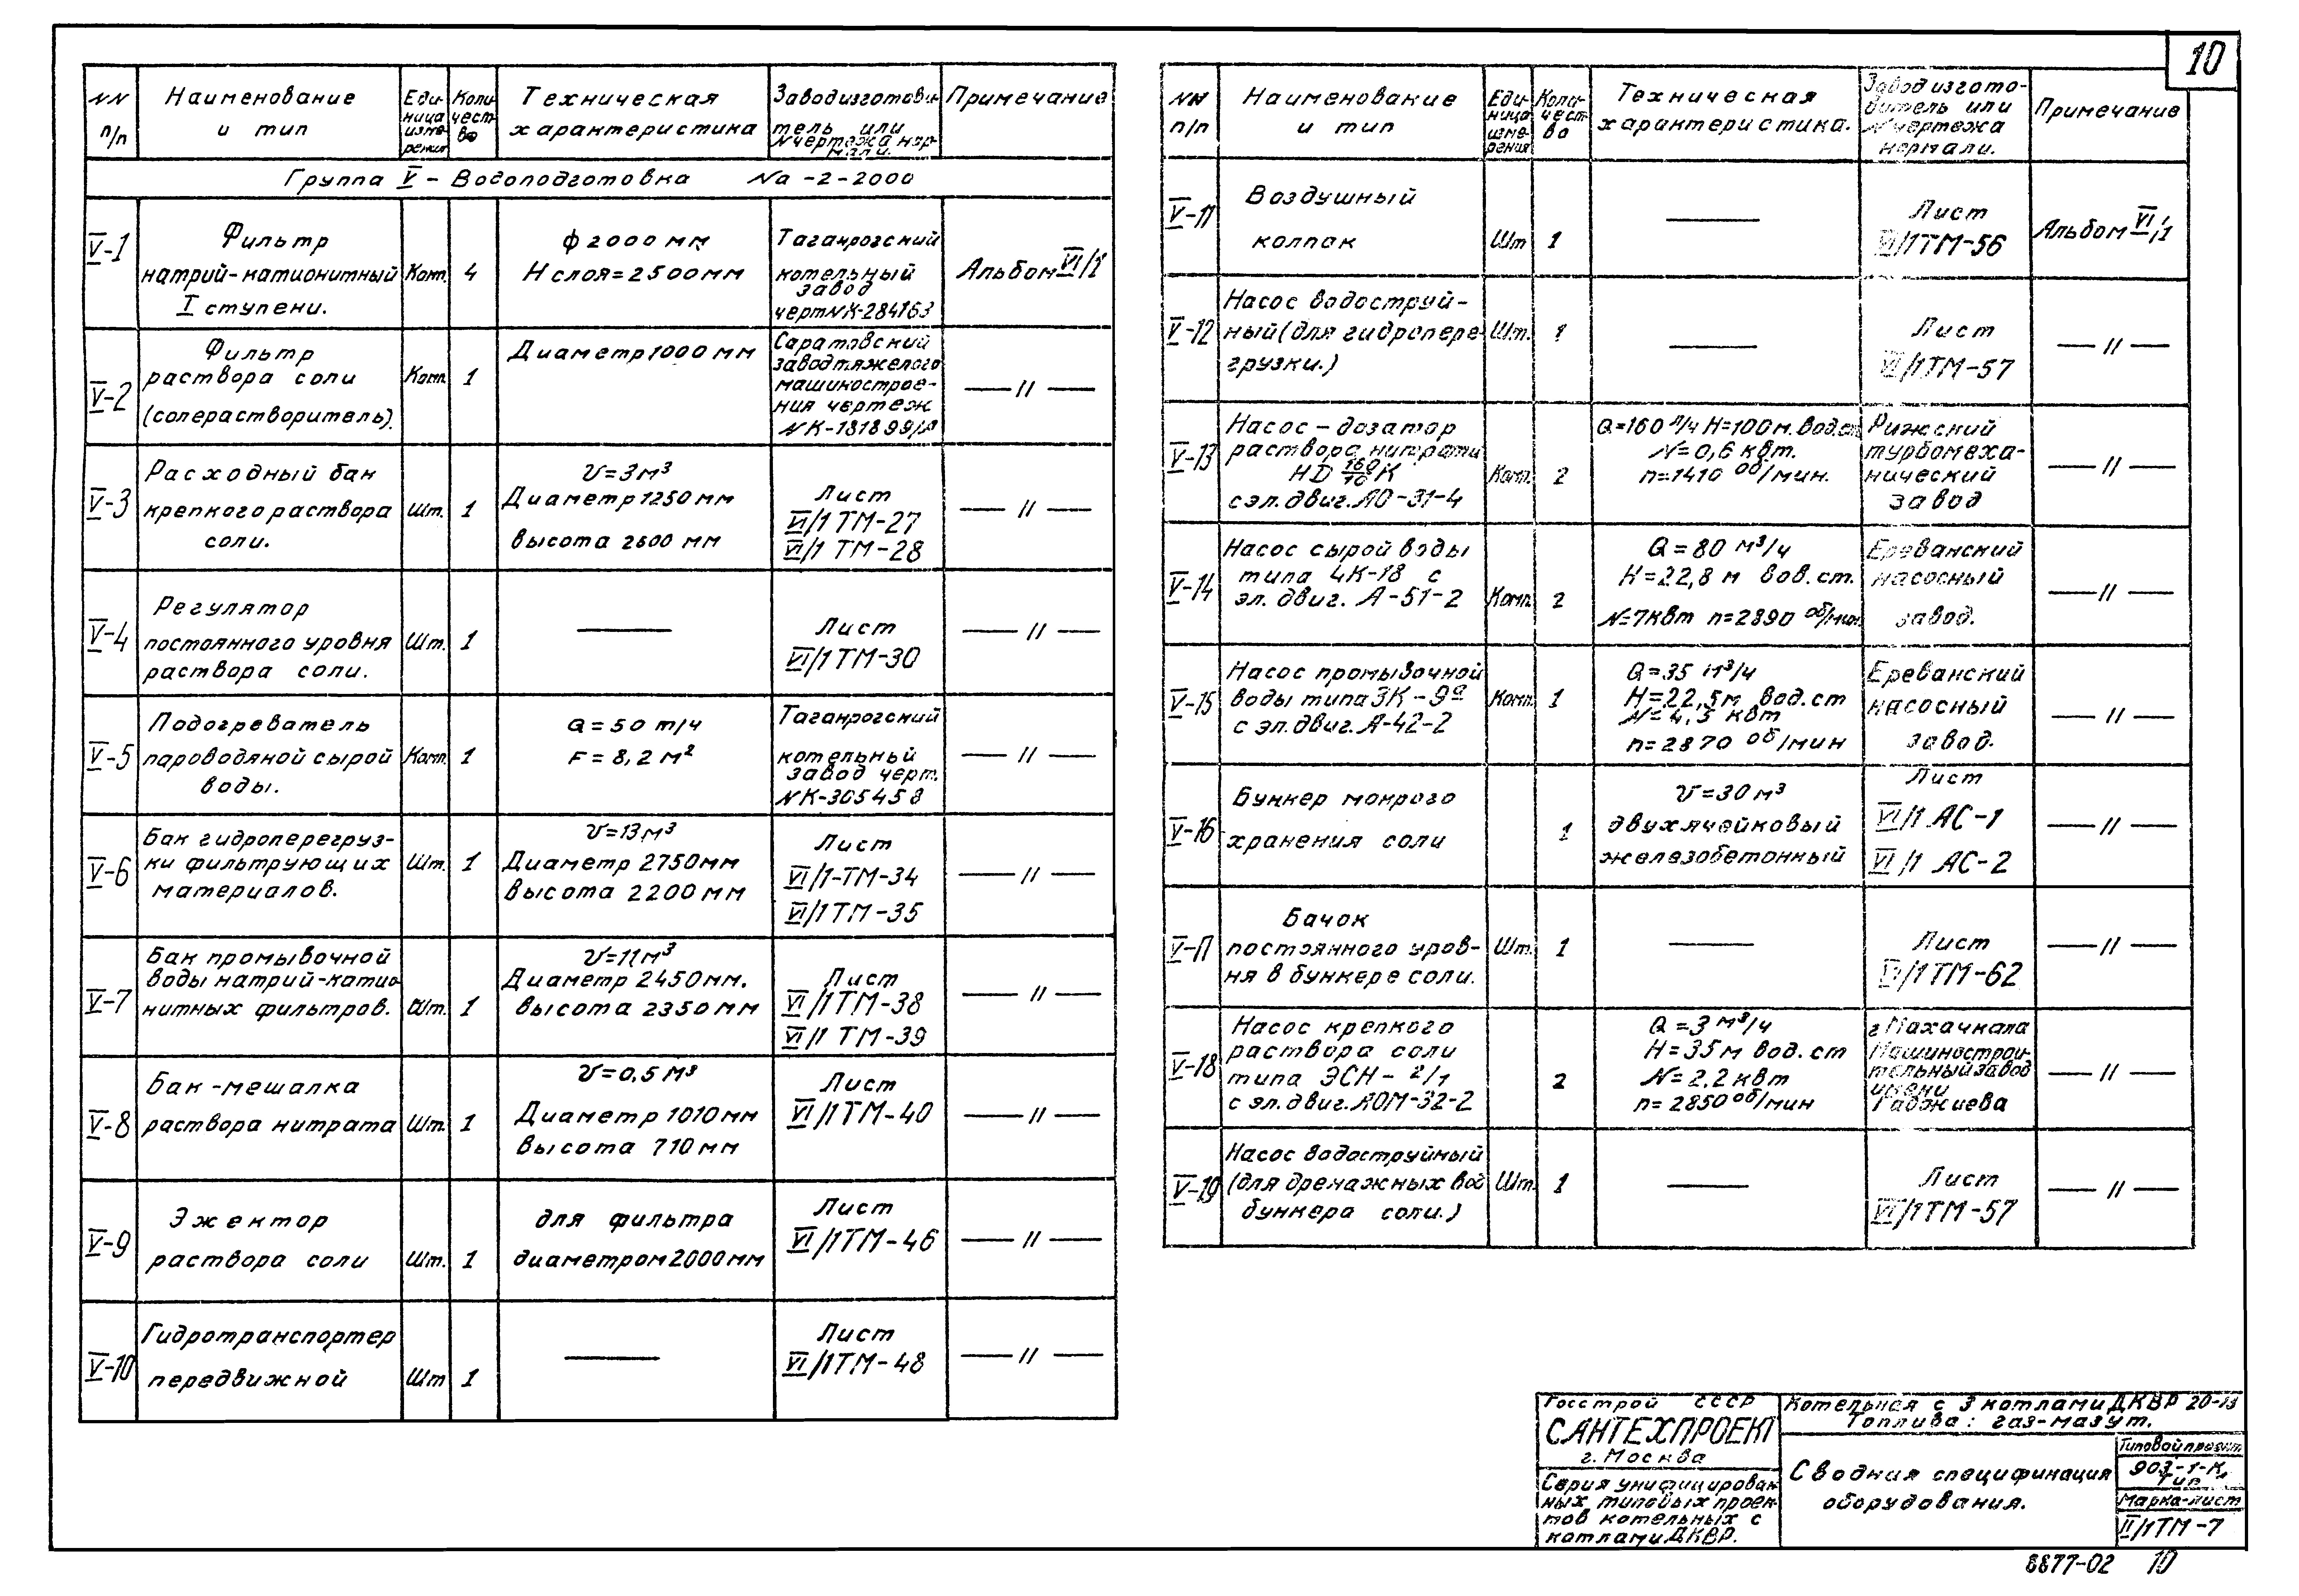 10
NN п/п Наименование и тип Единица измерения Количество Техническая характеристика Завод изготовитель или N чертежа нормали. Примечание
Группа V – Водоподготовка Na -2-2000
V-1 Фильтр натрий-катионитный I ступени. Комп. 4 ф 2000 мм Н слоя=2500мм Таганрогский котельный завод черт NК-284163 Альбом VI/1
V-2 Фильтр раствора соли (солерастворитель). Комп. 1 Диаметр 1000 мм Саратовский завод тяжелого машиностроения чертеж NК-181899/А — 〃 —
V-3 Расходный бак крепкого раствора соли. Шт. 1 V=3м³ Диаметр 1250 мм высота 2600 мм Лист VI/1 ТМ-27 VI/1 ТМ-28 — 〃 —
V-4 Регулятор постоянного уровня раствора соли. Шт. 1 —— Лист VI/1ТМ-30 — 〃 —
V-5 Подогреватель пароводяной сырой воды. Комп. 1 Q=50 т/ч F=8,2 м² Таганрогский котельный завод черт. NК-305458 — 〃 —
V-6 Бак гидроперегрузки фильтрующих материалов. Шт. 1 V=13м³ Диаметр 2750мм высота 2200 мм Лист VI/1-ТМ-34 VI/1ТМ-35 — 〃 —
V-7 Бак промывочной воды натрий-катионитных фильтров. Шт. 1 V=11м³ Диаметр 2450мм. высота 2350мм Лист VI/1ТМ-38 VI/1 ТМ-39 — 〃 —
V-8 Бак-мешалка раствора нитрата Шт. 1 V=0,5 м³ Диаметр 1010мм высота 710мм Лист VI/1ТМ-40 — 〃 —
V-9 Эжектор раствора соли Шт. 1 для фильтра диаметром 2000мм Лист VI/1ТМ-46 — 〃 —
V-10 Гидротранспортер передвижной Шт 1 —— Лист VI/1ТМ-48 — 〃 —
NN п/п Наименование и тип Единица измерения Количество Техническая характеристика. Завод изготовитель или N чертежа нормали. Примечание
V-11 Воздушный колпак Шт 1 —— Лист VI/1ТМ-56 Альбом VI/1
V-12 Насос водоструйный (для гидроперегрузки.) Шт. 1 —— Лист VI/1ТМ-57 — 〃 —
V-13 Насос-дозатор раствора нитрата НD 160/10 К с эл. двиг. АО-31-4 Комп. 2 Q=160 л/ч Н=100м. вод.ст N=0,6 квт. n=1410 об/мин. Рижский турбомеханический завод — 〃 —
V-14 Насос сырой воды типа 4К-18 с эл. двиг. А-51-2 Комп. 2 Q=80 м³/ч Н=22,8 м вов. ст. N=7квт n=2890 об/мин. Ереванский насосный завод. — 〃 —
V-15 Насос промывочной воды типа 3К-9а с эл. двиг. А-42-2 Комп. 1 Q=35 м³/ч Н=22,5м вод. ст N=4,5 квт n=2870 об/мин Ереванский насосный завод. — 〃 —
V-16 Бункер мокрого хранения соли 1 V=30м³ двухячейковый железобетонный Лист VI/1 АС-1 VI/1 АС-2 — 〃 —
V-17 Бачок постоянного уровня в бункере соли. Шт. 1 —— Лист VI/1ТМ-62 — 〃 —
V-18 Насос крепкого раствора соли типа ЭСН-2/1 с эл. двиг. АОМ-32-2 2 Q=3 м³/ч Н=35м вод. ст N=2,2 квт n=2850 об/мин г Махачкала Машиностроительный завод имени Гаджиева — 〃 —
V-19 Насос водоструйный (для дренажных вод бункера соли.) Шт. 1 —— Лист VI/1ТМ-57 — 〃 —
Госстрой СССР
САНТЕХПРОЕКТ
г. Москва
Серия унифицирован
ных типовых проек
тов котельных с
котлами ДКВР.
Котельная с 3 котлами ДКВР 20-13
Топлива: газ-мазут.
Сводная спецификация
оборудования.
Типовой проект
903-1-
Марка-лист
II/1ТМ-7
8877-02 10